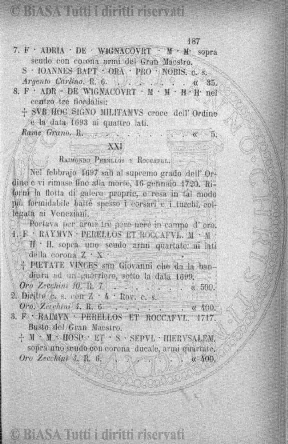 © BiASA Tutti i diritti riservati
187
7. F · ADRIA · DE WIGNACOVRT - M · M · sopra
scudo con corona armi del Gran Maestro.
S · IOANNES BAPT · ORA · PRO · NOBIS. c. s.
Argento Carlino. R. 6. « 35.
8. F · ADR - DE WIGNACOVRT · M · M · H · H · nel
centro tre fiordalisi:
† SVB HOC SIGNO MILITAMVS croce dell'Ordine
e la data 1693 ai quattro lati.
Rame Grano. R. « 5.
XXI
RAIMONDO PERELLOS Y ROCCAFUL.
Nel febbraio 1697 salì al supremo grado dell'Or-
dine e vi rimase fino alla morte, 16 gennaio 1720. Ri-
fornì la flotta di galere proprie, e resa in tal modo
più formidabile battè spesso i corsari e i turchi, col-
legata ai Veneziani.
Portava per arme tre pere nere in campo d'oro.
1. F · RAIMVN · PERELLOS ET ROCCAFVL · M · M ·
H · H. sopra uno scudo armi quartate: ai lati
della corona Z · X
† PIETATE VINCES san Giovanni che da la ban-
diera ad un guerriero, sotto la data 1699.
Oro Zecchini 10. R. 7. « 500.
2. Diritto c. s. con Z · 4 · Rov. c. s.
Oro Zecchini 4. R. 6 « 400.
3. F · RAIMVN · PERELLOS ET ROCCAFVL. 1717.
Busto del Gran Maestro.
† M · M · HOSP · ET · S · SEPVL · HIERVSALEM.
sopra uno scudo con corona ducale, armi quartate.
Oro Zecchini 4. R. 6. « 400.
© BiASA Tutti i diritti riservati